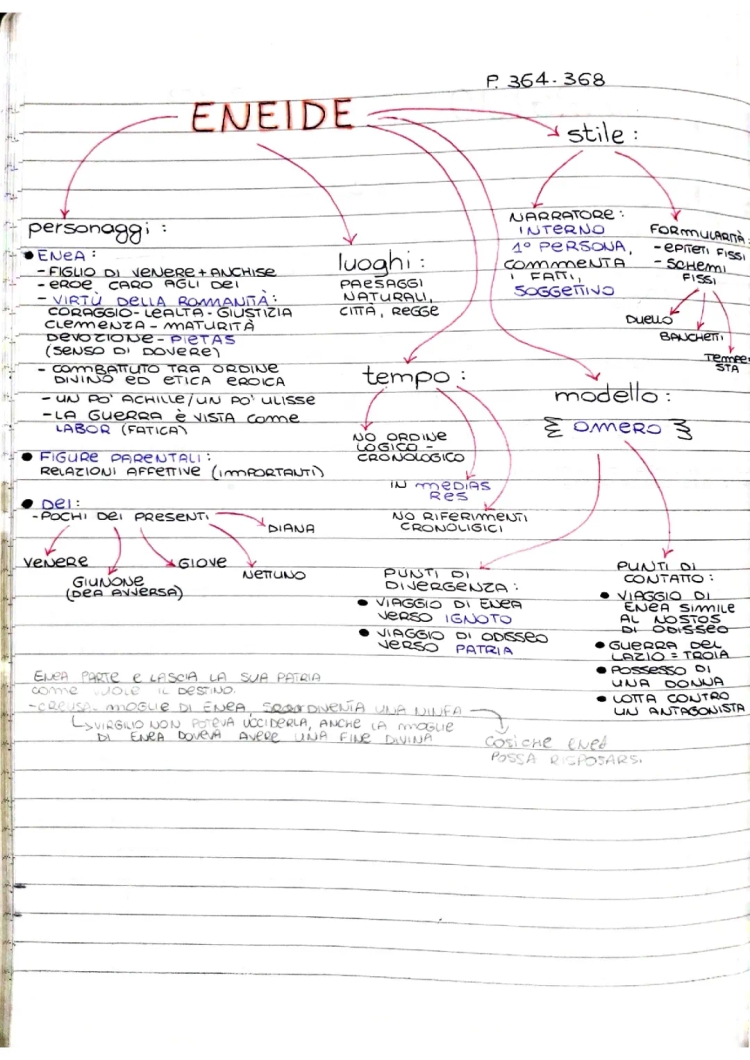 P. 364-368
ENEIDE
stile :
NARRATORE :
INTERNO
1° PERSONA,
COMMENTA
I FATTI,
SOGGETTIVO
FORMULARITÀ:
- EPITETI FISSI
- SCHEMI
FISSI
DUELLO
BANCHETTI
TEMPE
STA
personaggi :
• ENEA :
- FIGLIO DI VENERE + ANCHISE
- EROE CARO AGLI DEI
- VIRTÙ DELLA ROMANITÀ:
CORAGGIO - LEALTÀ - GIUSTIZIA
CLEMENZA - MATURITÀ
DEVOZIONE - PIETAS
(SENSO DI DOVERE)
- COMBATTUTO TRA ORDINE
DIVINO ED ETICA EROICA
- UN PO' ACHILLE / UN PO' ULISSE
- LA GUERRA È VISTA COME
LABOR (FATICA)
• FIGURE PARENTALI :
RELAZIONI AFFETTIVE (IMPORTANTI)
• DEI :
- POCHI DEI PRESENTI
DIANA
VENERE
GIUNONE
(DEA AVVERSA)
GIOVE
NETTUNO
luoghi :
PAESAGGI
NATURALI,
CITTÀ, REGGE
tempo :
NO ORDINE
LOGICO -
CRONOLOGICO
IN MEDIAS
RES
NO RIFERIMENTI
CRONOLIGICI
modello :
OMERO
PUNTI DI
DIVERGENZA :
• VIAGGIO DI ENEA
VERSO IGNOTO
• VIAGGIO DI ODISSEO
VERSO PATRIA
PUNTI DI
CONTATTO :
• VIAGGIO DI
ENEA SIMILE
AL NOSTOS
DI ODISSEO
• GUERRA DEL
LAZIO = TROIA
• POSSESSO DI
UNA DONNA
• LOTTA CONTRO
UN ANTAGONISTA
ENEA PARTE E LASCIA LA SUA PATRIA
COME VUOLE IL DESTINO.
- CREUSA, MOGLIE DI ENEA, DIVENTA UNA NINFA
VIRGILIO NON POTEVA UCCIDERLA, ANCHE LA MOGLIE
DI ENEA DOVEVA AVERE UNA FINE DIVINA
COSICHE ENEA
POSSA RISPOSARSI